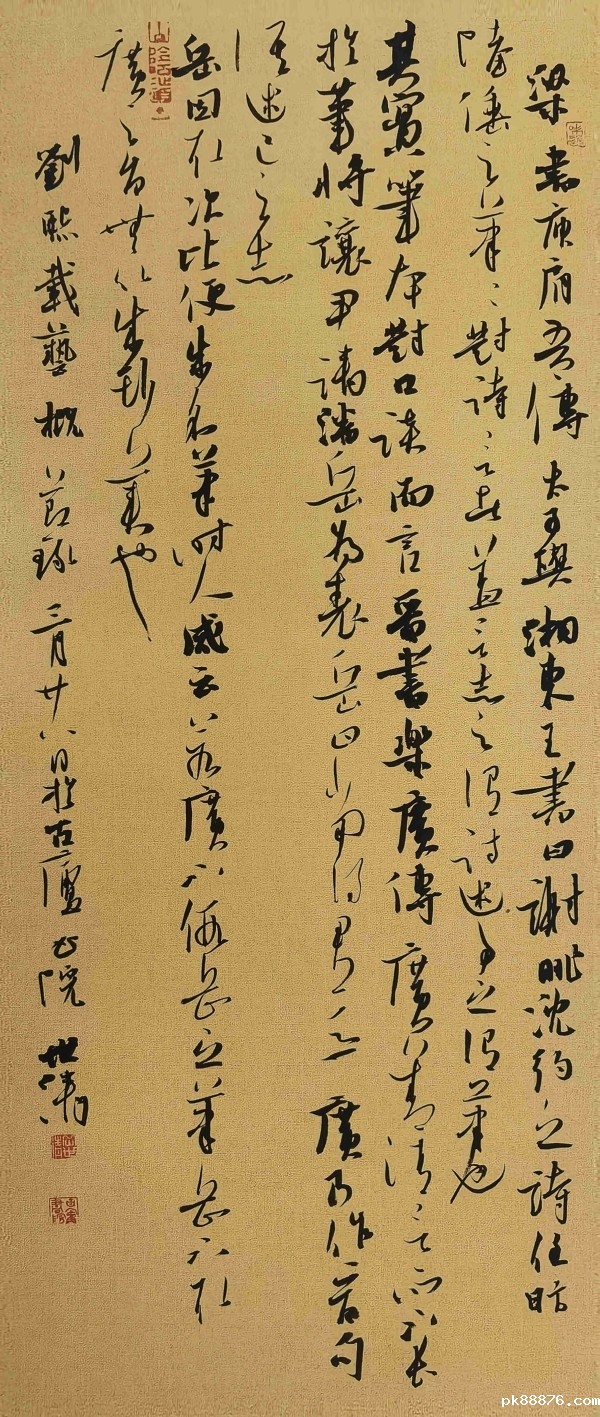 梁書庾肩吾傳太子與湘東王書曰謝朓沈約之詩任昉
陸倕之筆筆對詩言者蓋言志之謂詩述事之謂筆也
其實筆本對口談而言晉書樂廣傳廣善清言而不長
於筆將讓尹請潘岳為表岳曰當得君意廣乃作百句
語述己之志
岳因取次比便成名筆時人咸云若廣不假岳之筆岳不取
廣之旨無以成斯美也
劉熙載藝概節錄三月廿八日於古廬書院
pk88876.com